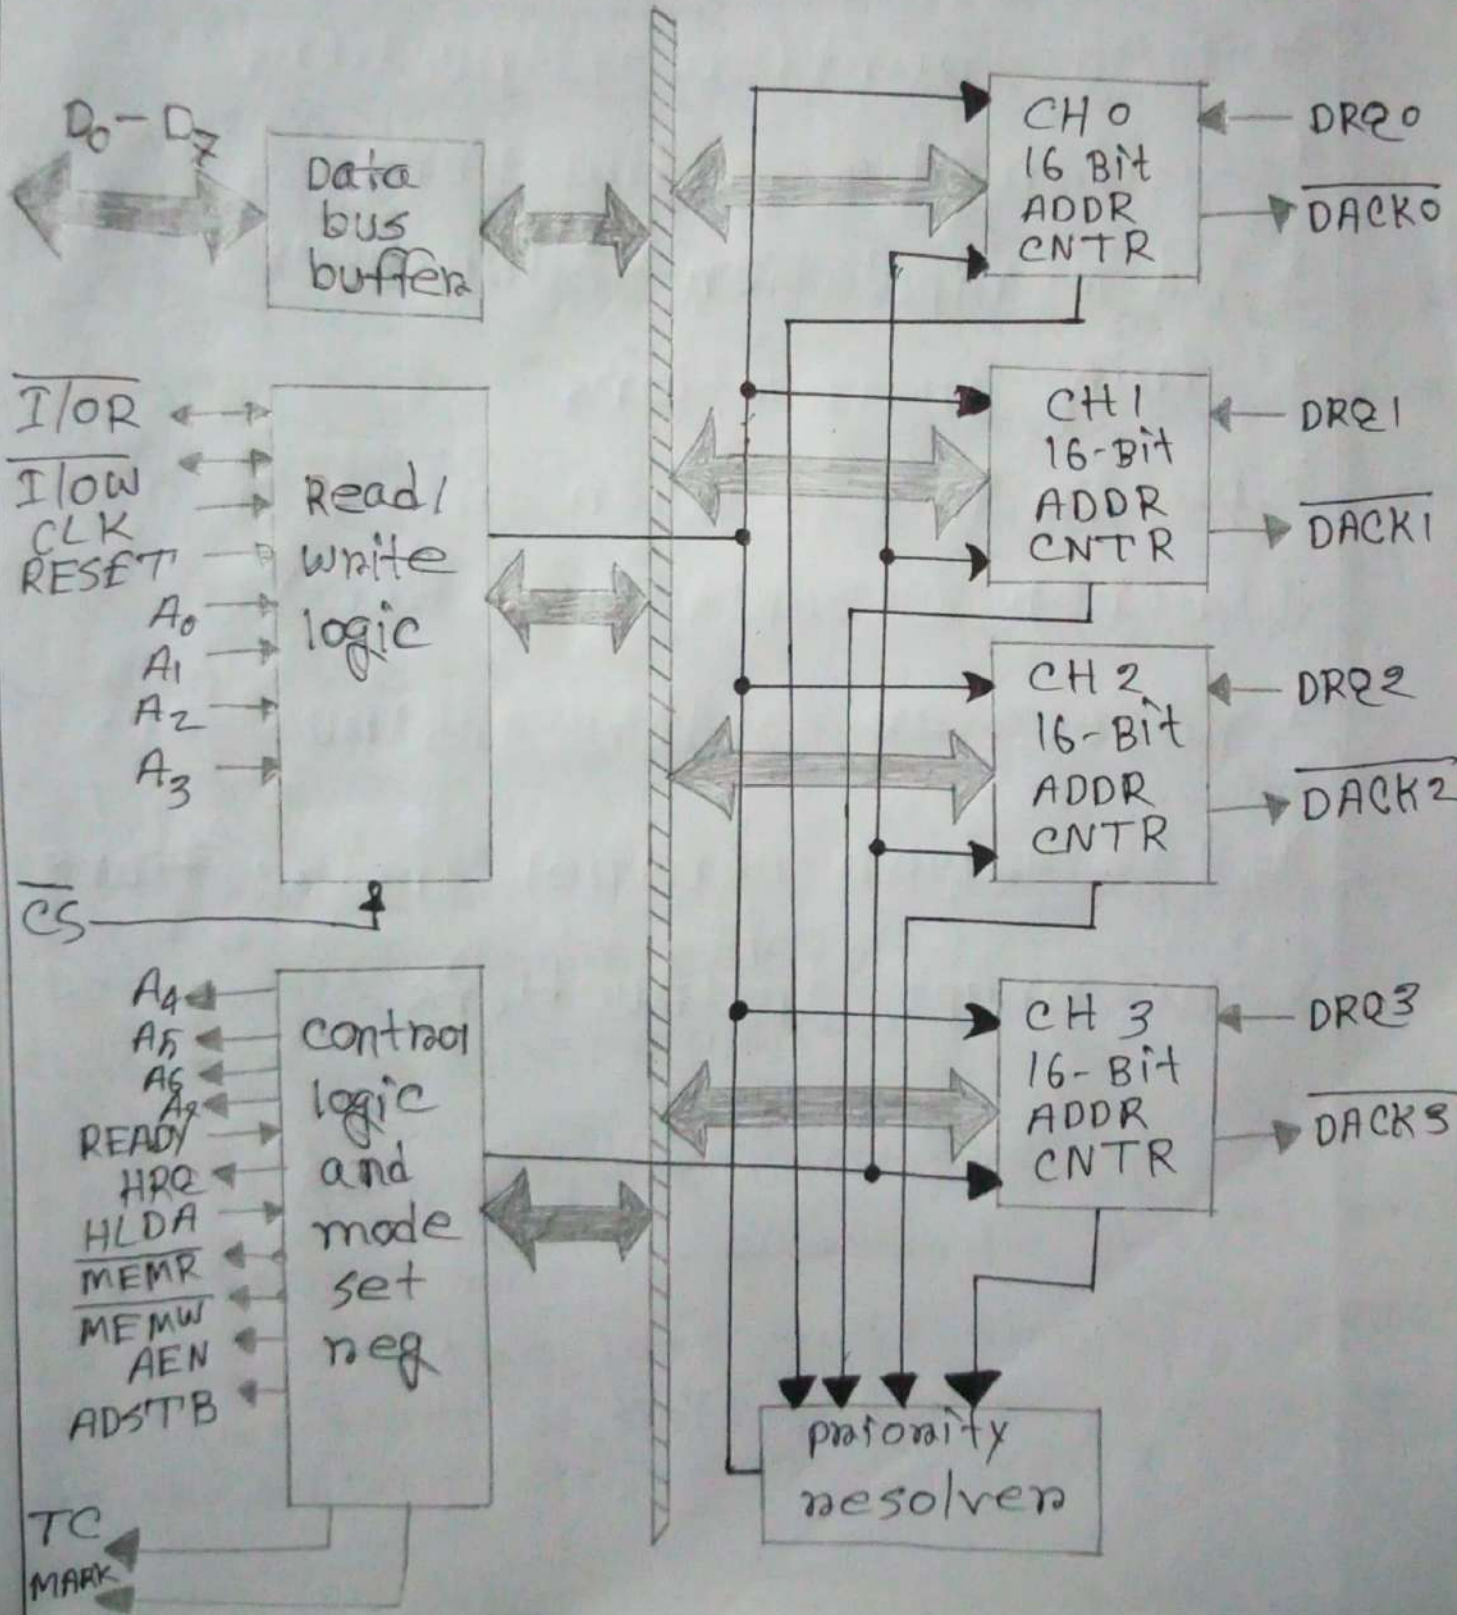 D0 - D7
Data
bus
buffer
I/OR
I/OW
CLK
RESET
A0
A1
A2
A3
Read/
write
logic
CS
A4
A5
A6
A7
READY
HRQ
HLDA
MEMR
MEMW
AEN
ADSTB
control
logic
and
mode
set
reg
TC
MARK
CH 0
16 Bit
ADDR
CNTR
DRQ0
DACK0
CH 1
16-Bit
ADDR
CNTR
DRQ1
DACK1
CH 2
16-Bit
ADDR
CNTR
DRQ2
DACK2
CH 3
16-Bit
ADDR
CNTR
DRQ3
DACK3
priority
resolver